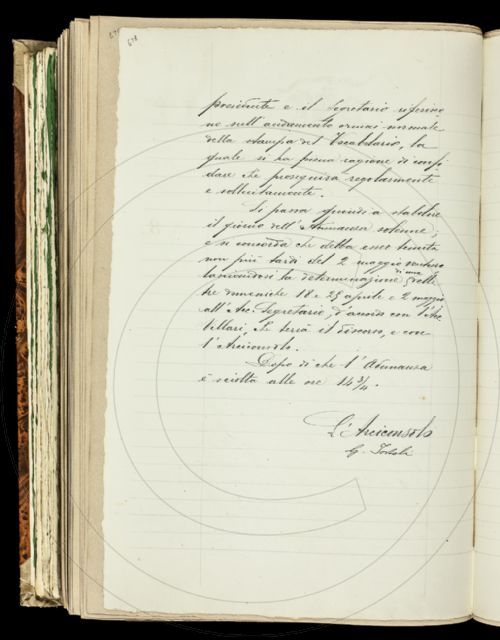 678
presidente e il Segretario riferisco-
no sull'andamento ormai normale
della stampa del Vocabolario, la
quale si ha ferma ragione di confi-
dare che proseguirà regolarmente
e sollecitamente.
Si passa quindi a stabilire
il giorno dell'Adunanza solenne;
e si concorda che debba esser tenuta
non più tardi del 2 maggio venturo
lasciandosi la determinazione di una delle
tre domeniche 18 e 25 aprile e 2 maggio
all'Arc. Segretario, d'accordo con l'Acc.
Villari, che terrà il discorso, e con
l'Arciconsolo.
Dopo di che l'Adunanza
è sciolta alle ore 14 3/4.
L'Arciconsolo
G. Tortoli